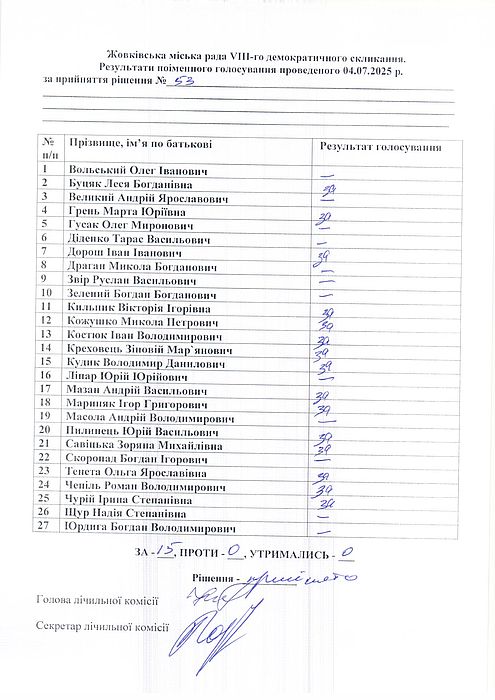 Жовківська міська рада VIII-го демократичного скликання.
Результати поіменного голосування проведеного 04.07.2025 р.
за прийняття рішення № 53
№ п/п Прізвище, ім’я по батькові Результат голосування
1 Вольський Олег Іванович —
2 Буцяк Леся Богданівна за
3 Великий Андрій Ярославович —
4 Грень Марта Юріївна за
5 Гусак Олег Миронович —
6 Діденко Тарас Васильович —
7 Дорош Іван Іванович за
8 Драган Микола Богданович —
9 Звір Руслан Васильович —
10 Зелений Богдан Богданович —
11 Кильник Вікторія Ігорівна за
12 Кожушко Микола Петрович за
13 Костюк Іван Володимирович за
14 Креховець Зіновій Мар`янович за
15 Кудик Володимир Данилович за
16 Лінар Юрій Юрійович —
17 Мазан Андрій Васильович за
18 Мариняк Ігор Григорович за
19 Масола Андрій Володимирович —
20 Пилипець Юрій Васильович за
21 Савіцька Зоряна Михайлівна за
22 Скоропад Богдан Ігорович —
23 Тенета Ольга Ярославівна за
24 Чепіль Роман Володимирович за
25 Чурій Ірина Степанівна за
26 Щур Надія Степанівна —
27 Юрдига Богдан Володимирович —
ЗА - 15, ПРОТИ - 0, УТРИМАЛИСЬ - 0
Рішення - прийнято
Голова лічильної комісії
Секретар лічильної комісії